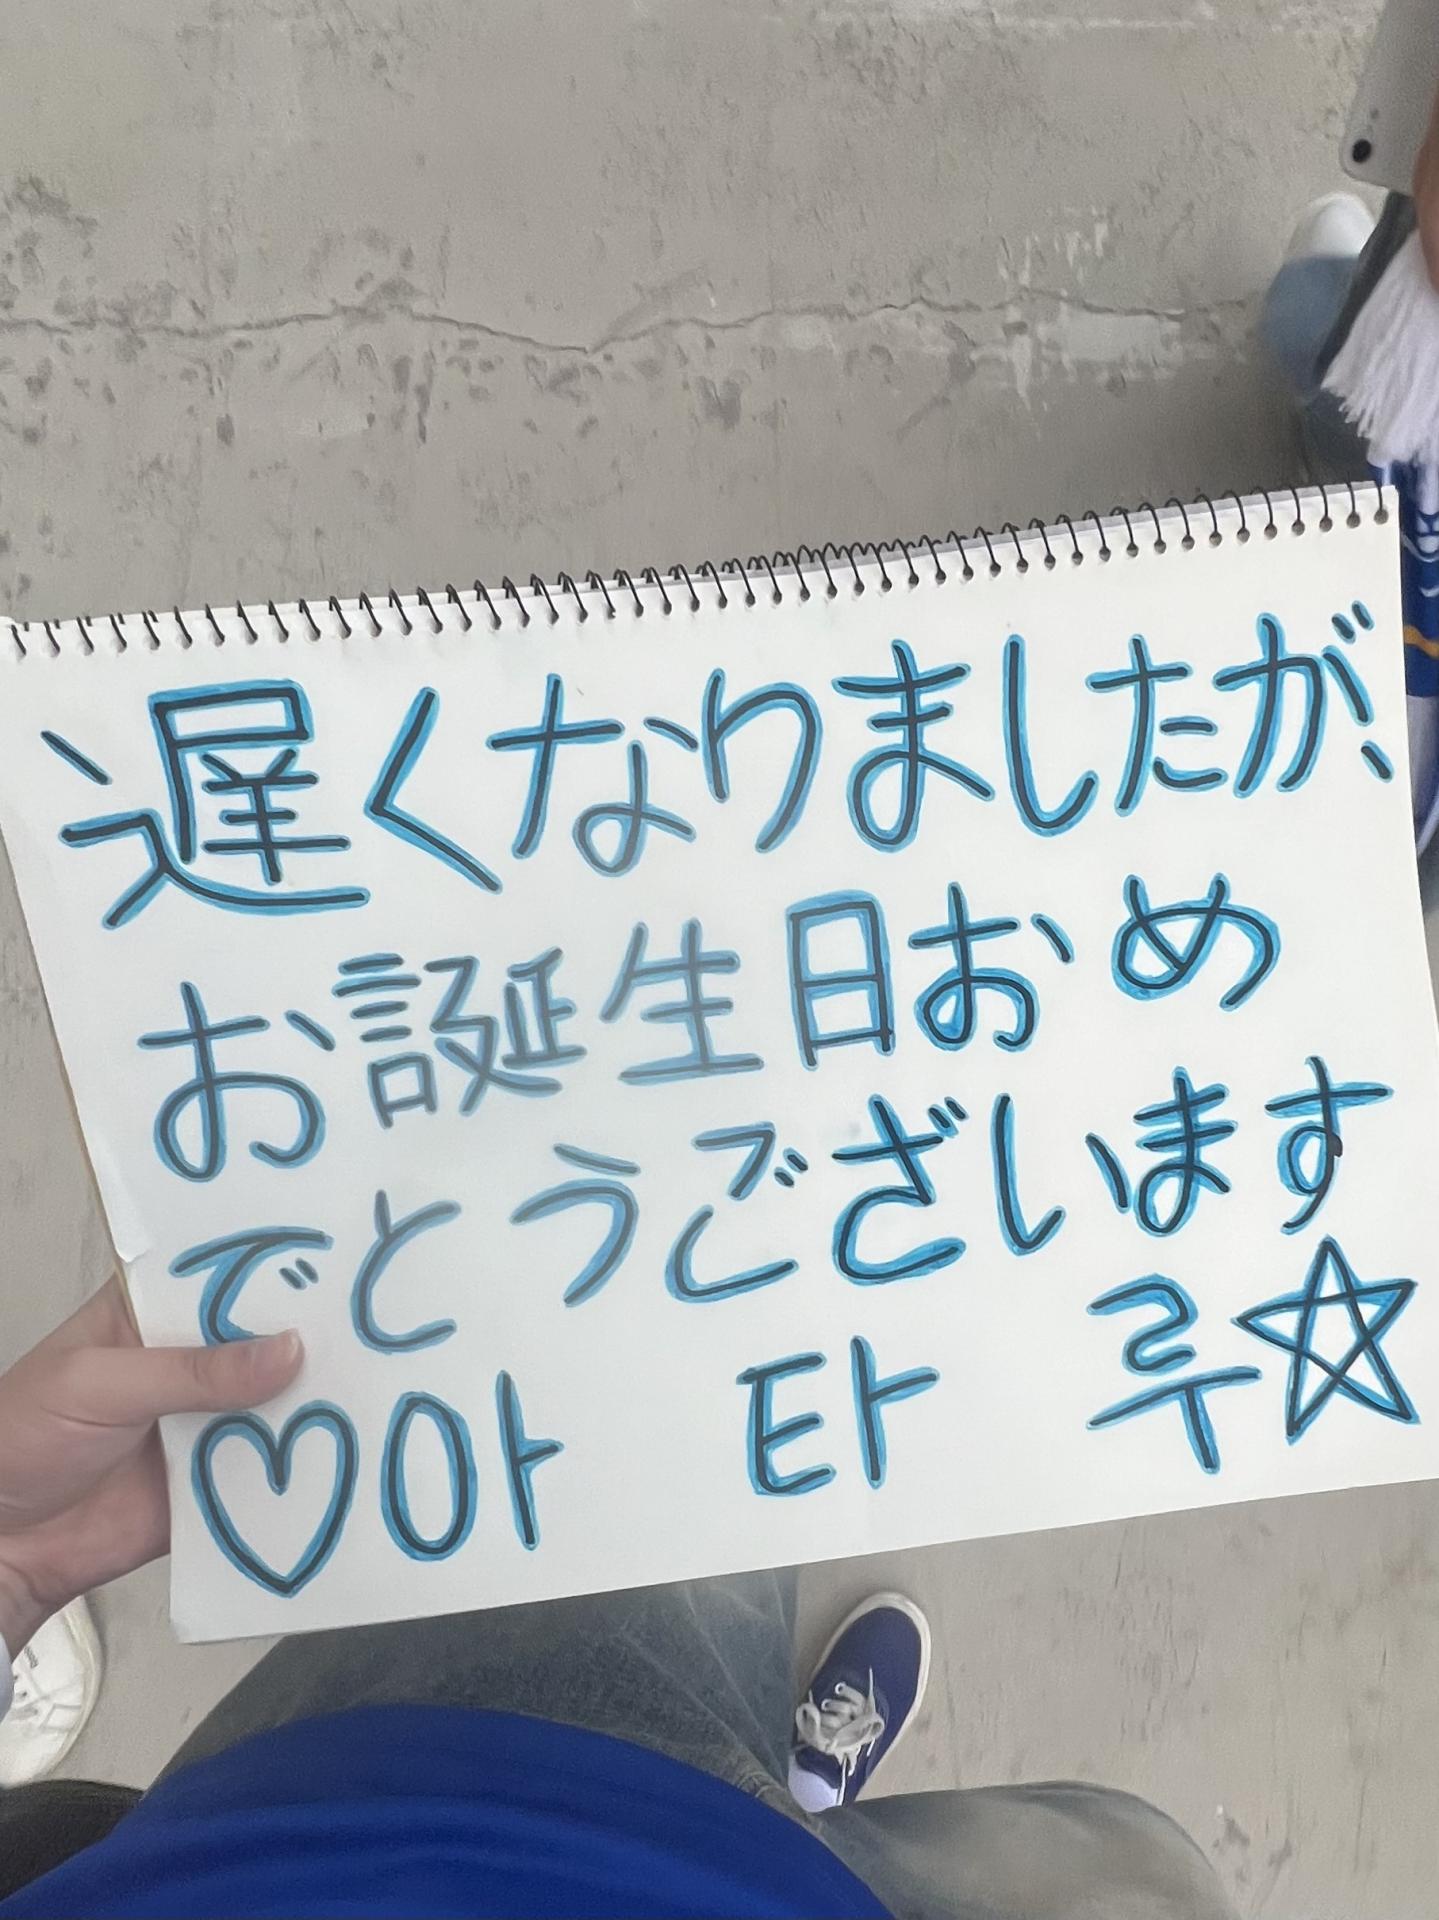 遅くなりましたが、
お誕生日おめ
でとうございます
♡아 타 루☆